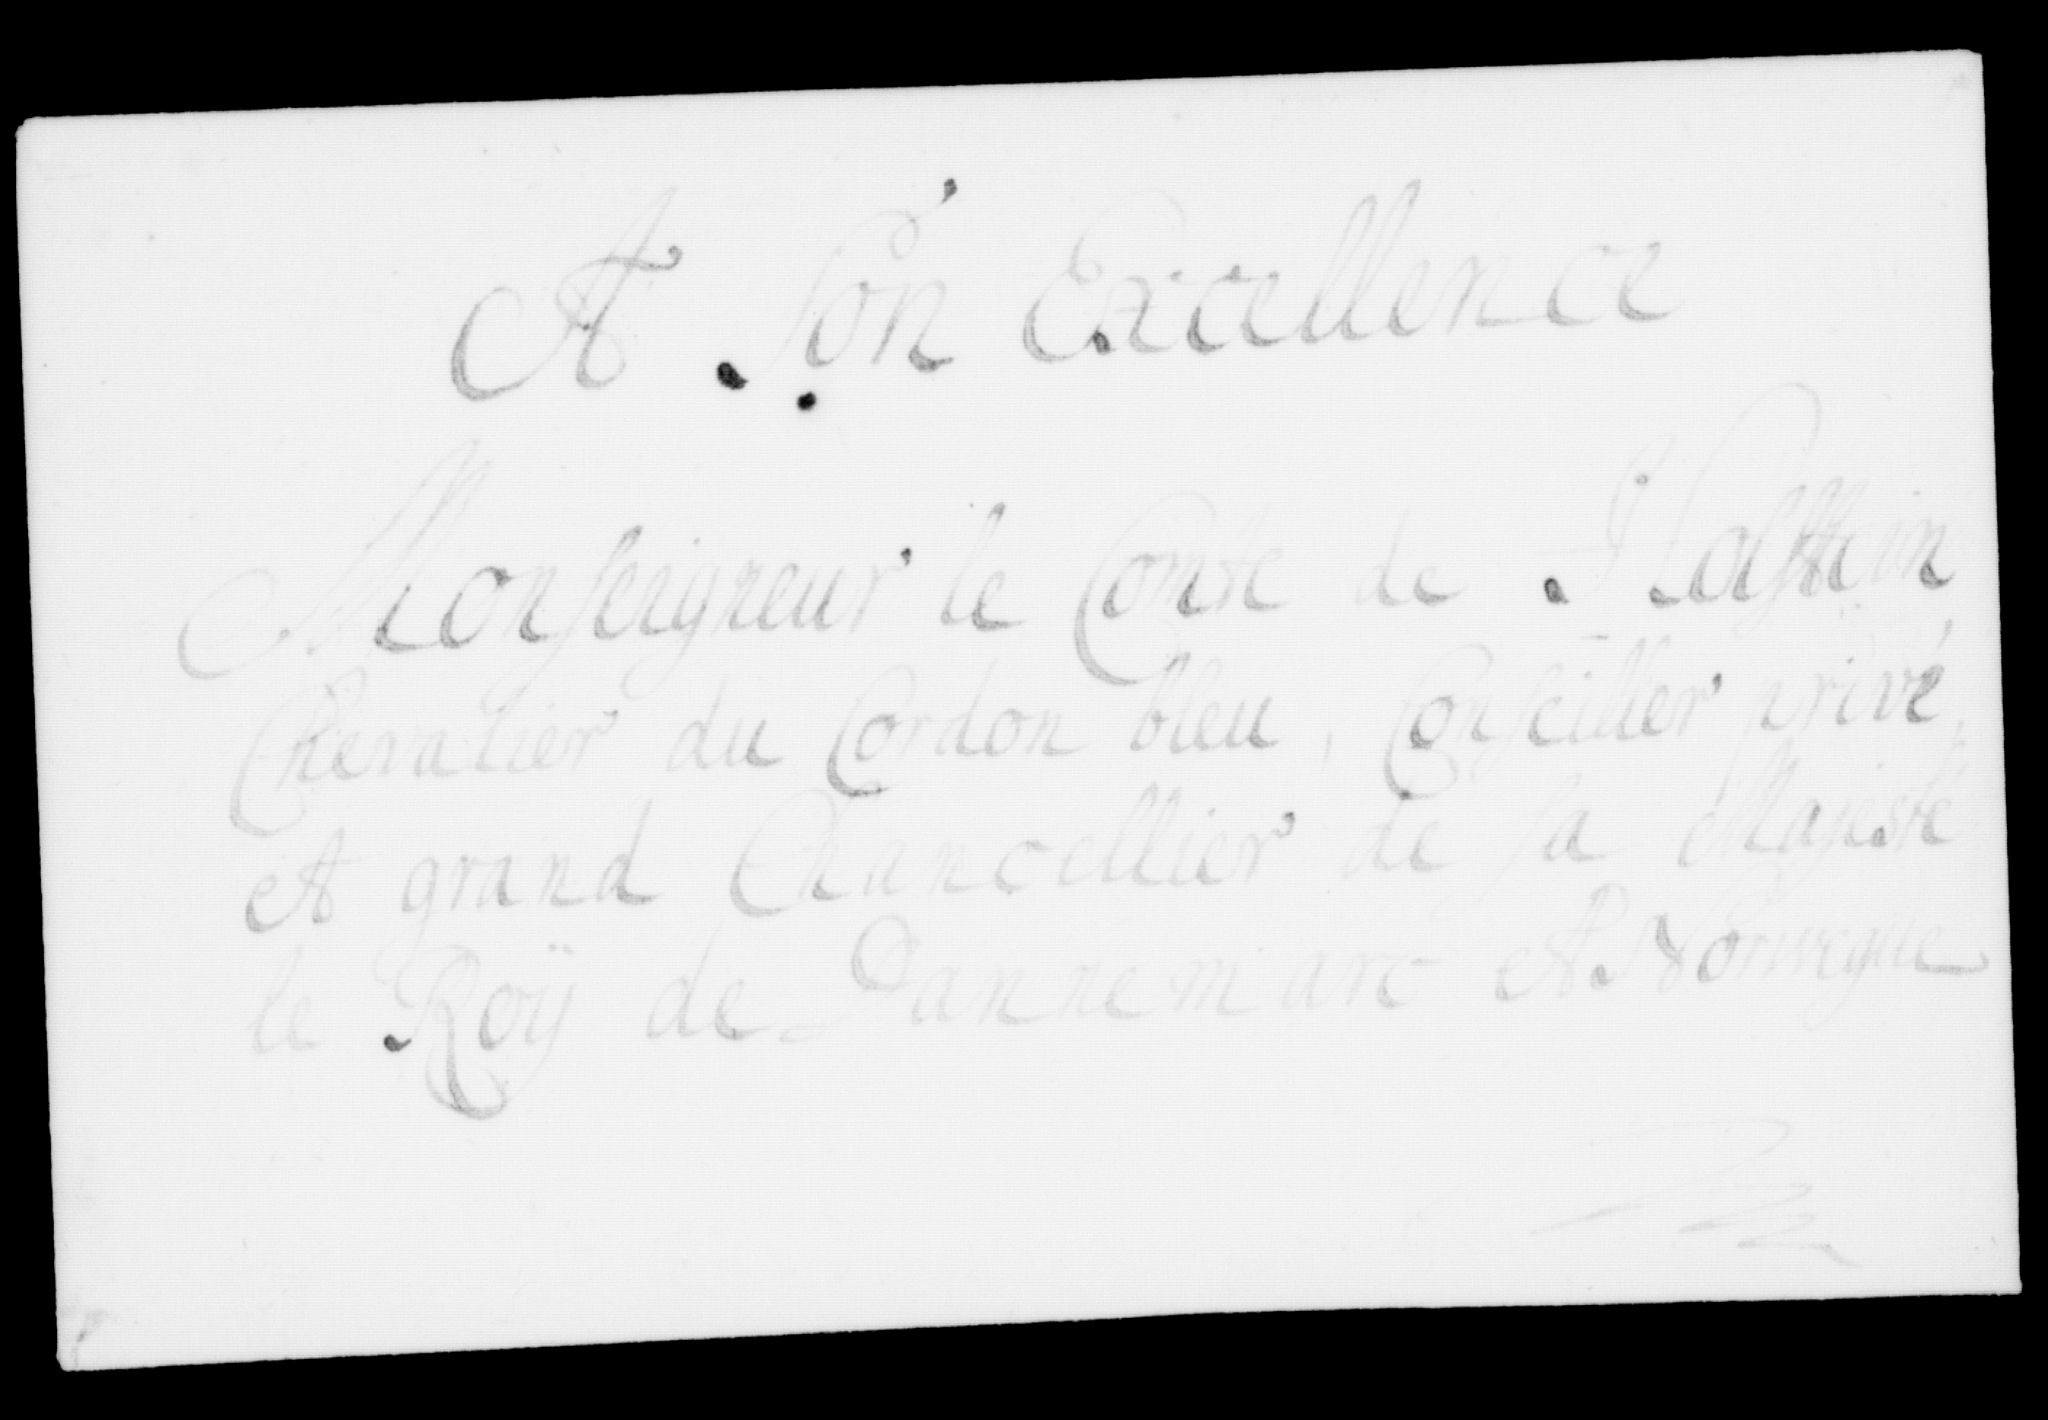 A Son Excellence
Monseigneur le Comte de Holstein
Chevalier du Cordon bleu, Conseiller privé,
et grand Chancellier de sa Majesté
le Roÿ de Dannemarc et Norwegue